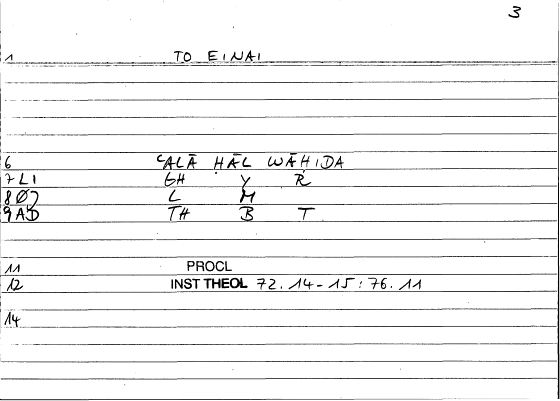 3
1 TO EINAI
6 ʿALĀ ḤĀL WĀḤIDA
7LI GH Y R
8Ø) L M
9AD TH B T
11 PROCL
12 INST THEOL 72.14-15:76.11
14